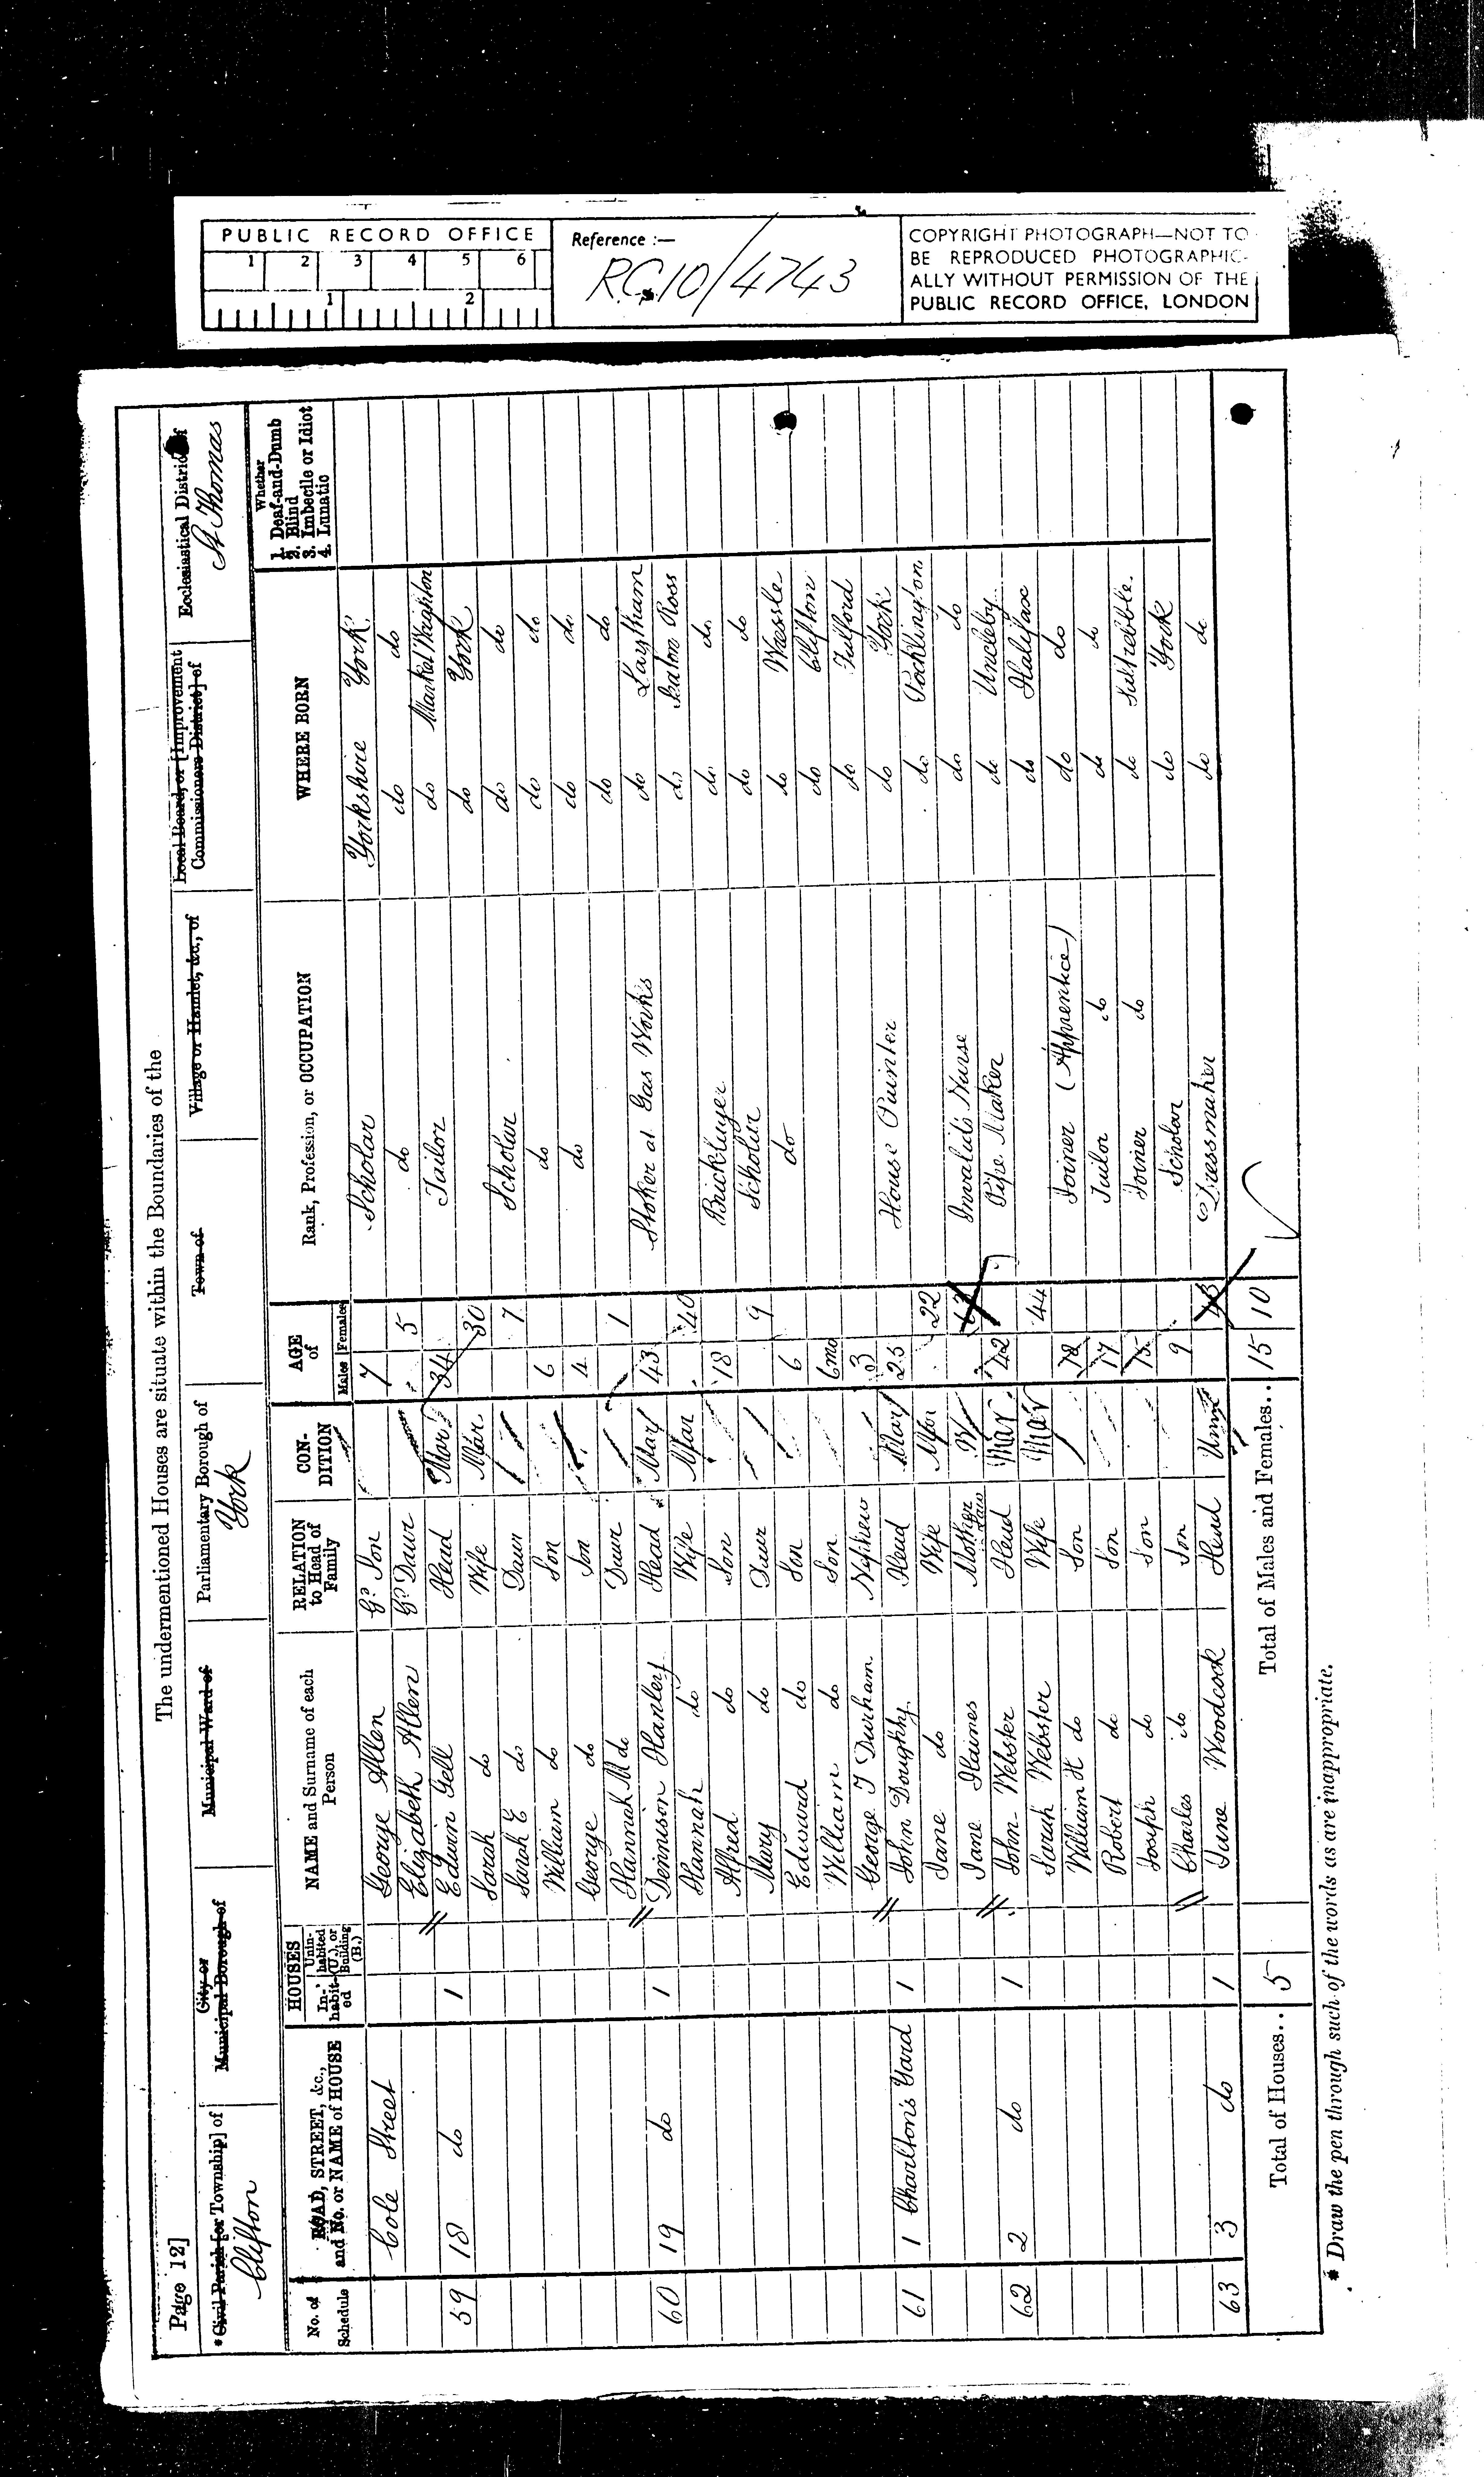 PUBLIC RECORD OFFICE
1 2 3 4 5 6
1 2
Reference :—
RG 10/4743
COPYRIGHT PHOTOGRAPH—NOT TO
BE REPRODUCED PHOTOGRAPHIC-
ALLY WITHOUT PERMISSION OF THE
PUBLIC RECORD OFFICE, LONDON
Page 12]
The undermentioned Houses are situate within the Boundaries of the
*Civil Parish [or Township] of Clifton
City or Municipal Borough of
Municipal Ward of
Parliamentary Borough of York
Town of
Village or Hamlet, &c., of
Local Board, or [Improvement Commissioners District] of
Ecclesiastical District of St Thomas
No. of Schedule
ROAD, STREET, &c., and No. or NAME of HOUSE
HOUSES In-habit-ed Unin-habited (U.), or Building (B.)
NAME and Surname of each Person
RELATION to Head of Family
CON-DITION
AGE of Males Females
Rank, Profession, or OCCUPATION
WHERE BORN
Whether 1. Deaf-and-Dumb 2. Blind 3. Imbecile or Idiot 4. Lunatic
Cole Street George Allen Gd Son 7 Scholar Yorkshire York
Elizabeth Allen Gd Daur 5 do do do
59 18 do 1 Edwin Gell Head Mar 34 Tailor do Market Weighton
Sarah do Wife Mar 30 do York
Sarah E do Daur 7 Scholar do do
William do Son 6 do do do
George do Son 4 do do do
Hannah M do Daur 1 do do
60 19 do 1 Dennison Hanley Head Mar 43 Stoker at Gas Works do Laytham
Hannah do Wife Mar 40 do Seaton Ross
Alfred do Son 18 Bricklayer do do
Mary do Daur 9 Scholar do do
Edward do Son 6 do do Wessle
William do Son 6mo do Clifton
George T Durham Nephew 3 do Fulford
61 1 Charlton's Yard 1 John Doughty Head Mar 25 House Painter do York
Jane do Wife Mar 22 do Pocklington
Jane Haines Mother in Law W Invalids Nurse do do
62 2 do 1 John Webster Head Mar 42 Pipe Maker do Uncleby
Sarah Webster Wife Mar 44 do Halifax
William H do Son Joiner (Apprentice) do do
Robert do Son 17 Tailor do do do
Joseph do Son 15 Joiner do do Salterebble
Charles do Son 9 Scholar do York
63 3 do 1 Jane Woodcock Head Unm Dressmaker do do
Total of Houses.. 5
Total of Males and Females.. 15 10
* Draw the pen through such of the words as are inappropriate.